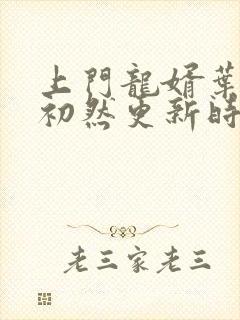 上門龍婿葉
初然更新時
老三家老三